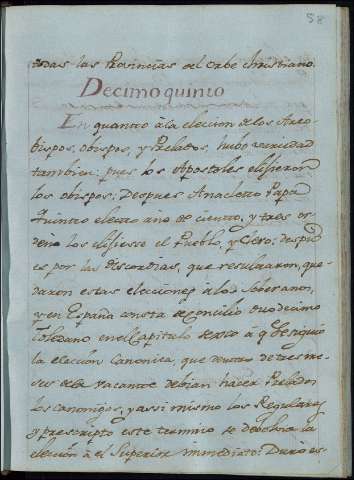 58
todas las Provincias del Orbe christiano.
Decimo quinto
En quanto à la eleccion de los Arzo-
bispos, obispos, y Prelados, hubo variedad
tambien: pues los Apostoles elijieron
los obispos; Despues Anacleto Papa
Quinto electo año de ciento, y tres or-
deno los elijiesse el Pueblo, y Clero: despu-
es por las discordias, que resultaron, que-
daron estas elecciones à los soberanos,
y en España consta de Concilio duodecimo
Toledano en el Capitulo sexto à q.e se siguio
la eleccion Canonica, que dentro de tres me-
ses de la vacante debian hacer Prelados
los canonigos, y assi mismo los Regulares
y prescripto este termino se debolvia la
eleccion à el Superior immediato: Duro es-